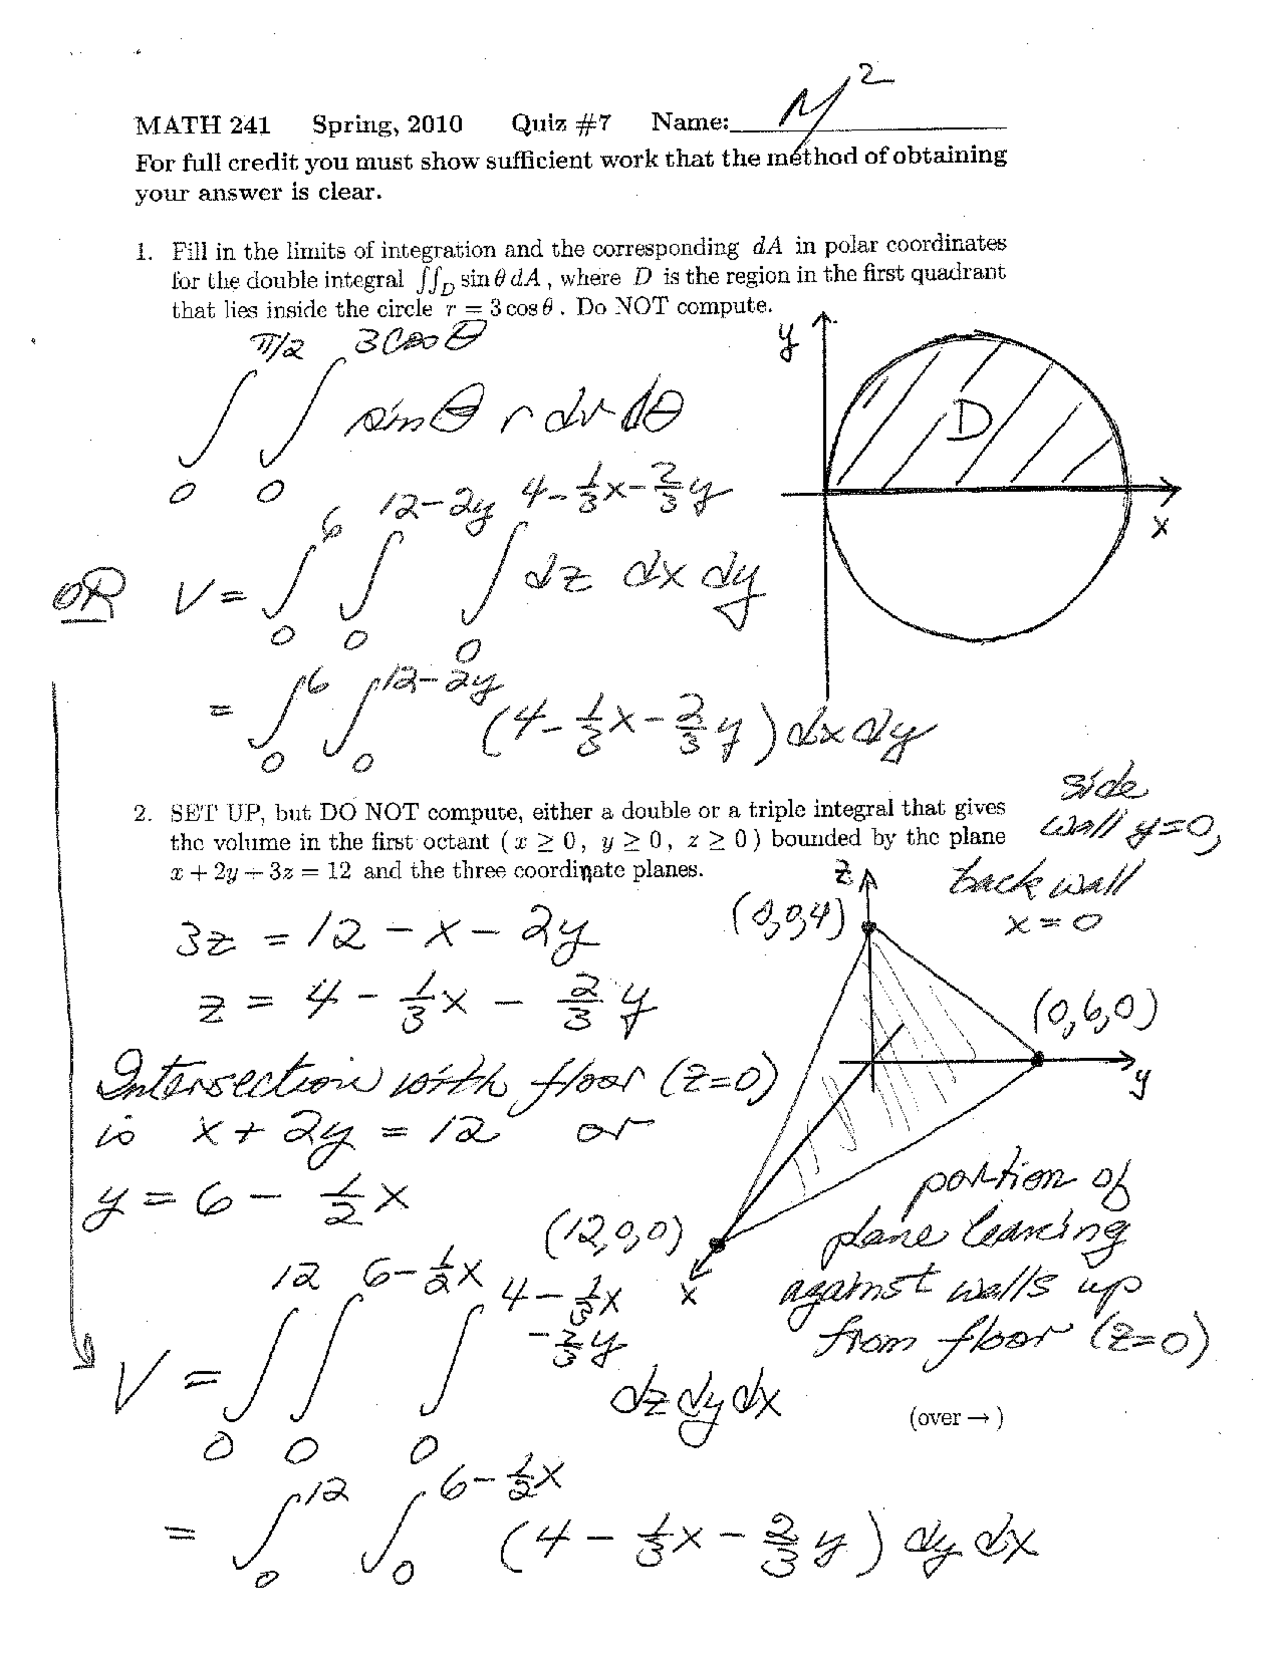 MATH 241 Spring, 2010 Quiz #7 Name: M²
For full credit you must show sufficient work that the method of obtaining
your answer is clear.
1. Fill in the limits of integration and the corresponding dA in polar coordinates
for the double integral ∬_D sin θ dA, where D is the region in the first quadrant
that lies inside the circle r = 3 cos θ. Do NOT compute.
∫_0^{π/2} ∫_0^{3 cos θ} sin θ r dr dθ
y
D
x
OR V = ∫_0^6 ∫_0^{12-2y} ∫_0^{4-\frac{1}{3}x-\frac{2}{3}y} dz dx dy
= ∫_0^6 ∫_0^{12-2y} (4-\frac{1}{3}x-\frac{2}{3}y) dx dy
2. SET UP, but DO NOT compute, either a double or a triple integral that gives
the volume in the first octant (x ≥ 0, y ≥ 0, z ≥ 0) bounded by the plane
x + 2y + 3z = 12 and the three coordinate planes.
side
wall y=0,
back wall
x = 0
3z = 12 - x - 2y
z = 4 - \frac{1}{3}x - \frac{2}{3}y
Intersection with floor (z=0)
is x + 2y = 12 or
y = 6 - \frac{1}{2}x
z
(0,0,4)
(0,6,0)
y
(12,0,0)
x
portion of
plane leaning
against walls up
from floor (z=0)
V = ∫_0^{12} ∫_0^{6-\frac{1}{2}x} ∫_0^{4-\frac{1}{3}x-\frac{2}{3}y} dz dy dx
(over →)
= ∫_0^{12} ∫_0^{6-\frac{1}{2}x} (4 - \frac{1}{3}x - \frac{2}{3}y) dy dx